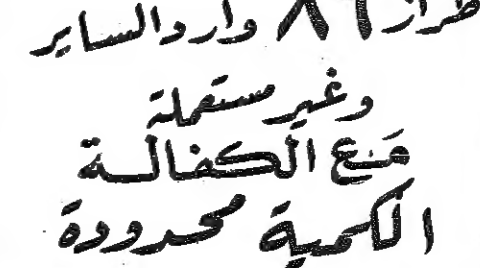 طراز ٨٦ وارد الساير
وغير مستعملة
مع الكفالة
الكمية محدودة